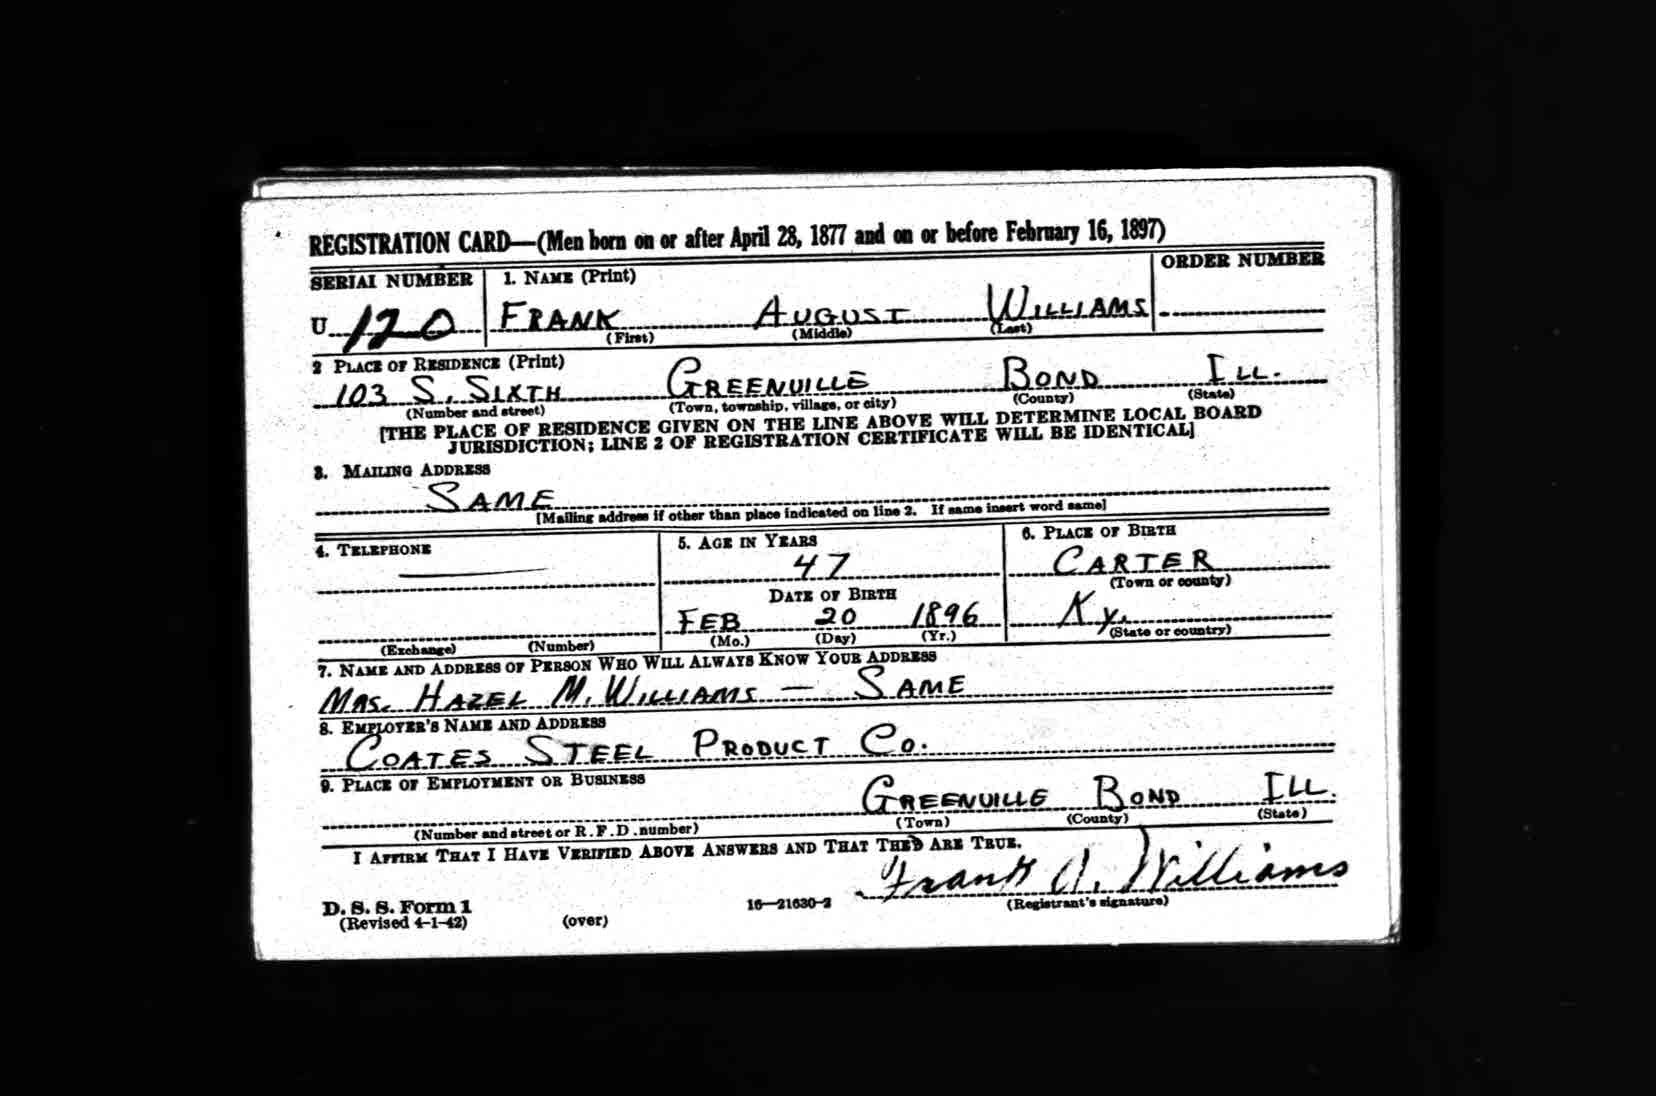 REGISTRATION CARD—(Men born on or after April 28, 1877 and on or before February 16, 1897)
SERIAL NUMBER 1. NAME (Print) ORDER NUMBER
U 120 FRANK AUGUST WILLIAMS
(First) (Middle) (Last)
2 PLACE OF RESIDENCE (Print)
103 S. SIXTH GREENVILLE BOND ILL.
(Number and street) (Town, township, village, or city) (County) (State)
[THE PLACE OF RESIDENCE GIVEN ON THE LINE ABOVE WILL DETERMINE LOCAL BOARD
JURISDICTION; LINE 2 OF REGISTRATION CERTIFICATE WILL BE IDENTICAL]
3. MAILING ADDRESS
SAME
[Mailing address if other than place indicated on line 2. If same insert word same]
4. TELEPHONE 5. AGE IN YEARS 6. PLACE OF BIRTH
47 CARTER
(Town or county)
DATE OF BIRTH
FEB 20 1896 Ky.
(Exchange) (Number) (Mo.) (Day) (Yr.) (State or country)
7. NAME AND ADDRESS OF PERSON WHO WILL ALWAYS KNOW YOUR ADDRESS
MRS. HAZEL M. WILLIAMS — SAME
8. EMPLOYER'S NAME AND ADDRESS
COATES STEEL PRODUCT CO.
9. PLACE OF EMPLOYMENT OR BUSINESS
GREENVILLE BOND ILL.
(Number and street or R. F. D. number) (Town) (County) (State)
I AFFIRM THAT I HAVE VERIFIED ABOVE ANSWERS AND THAT THEY ARE TRUE.
Frank A. Williams
D. S. S. Form 1 16—21630-2 (Registrant's signature)
(Revised 4-1-42) (over)